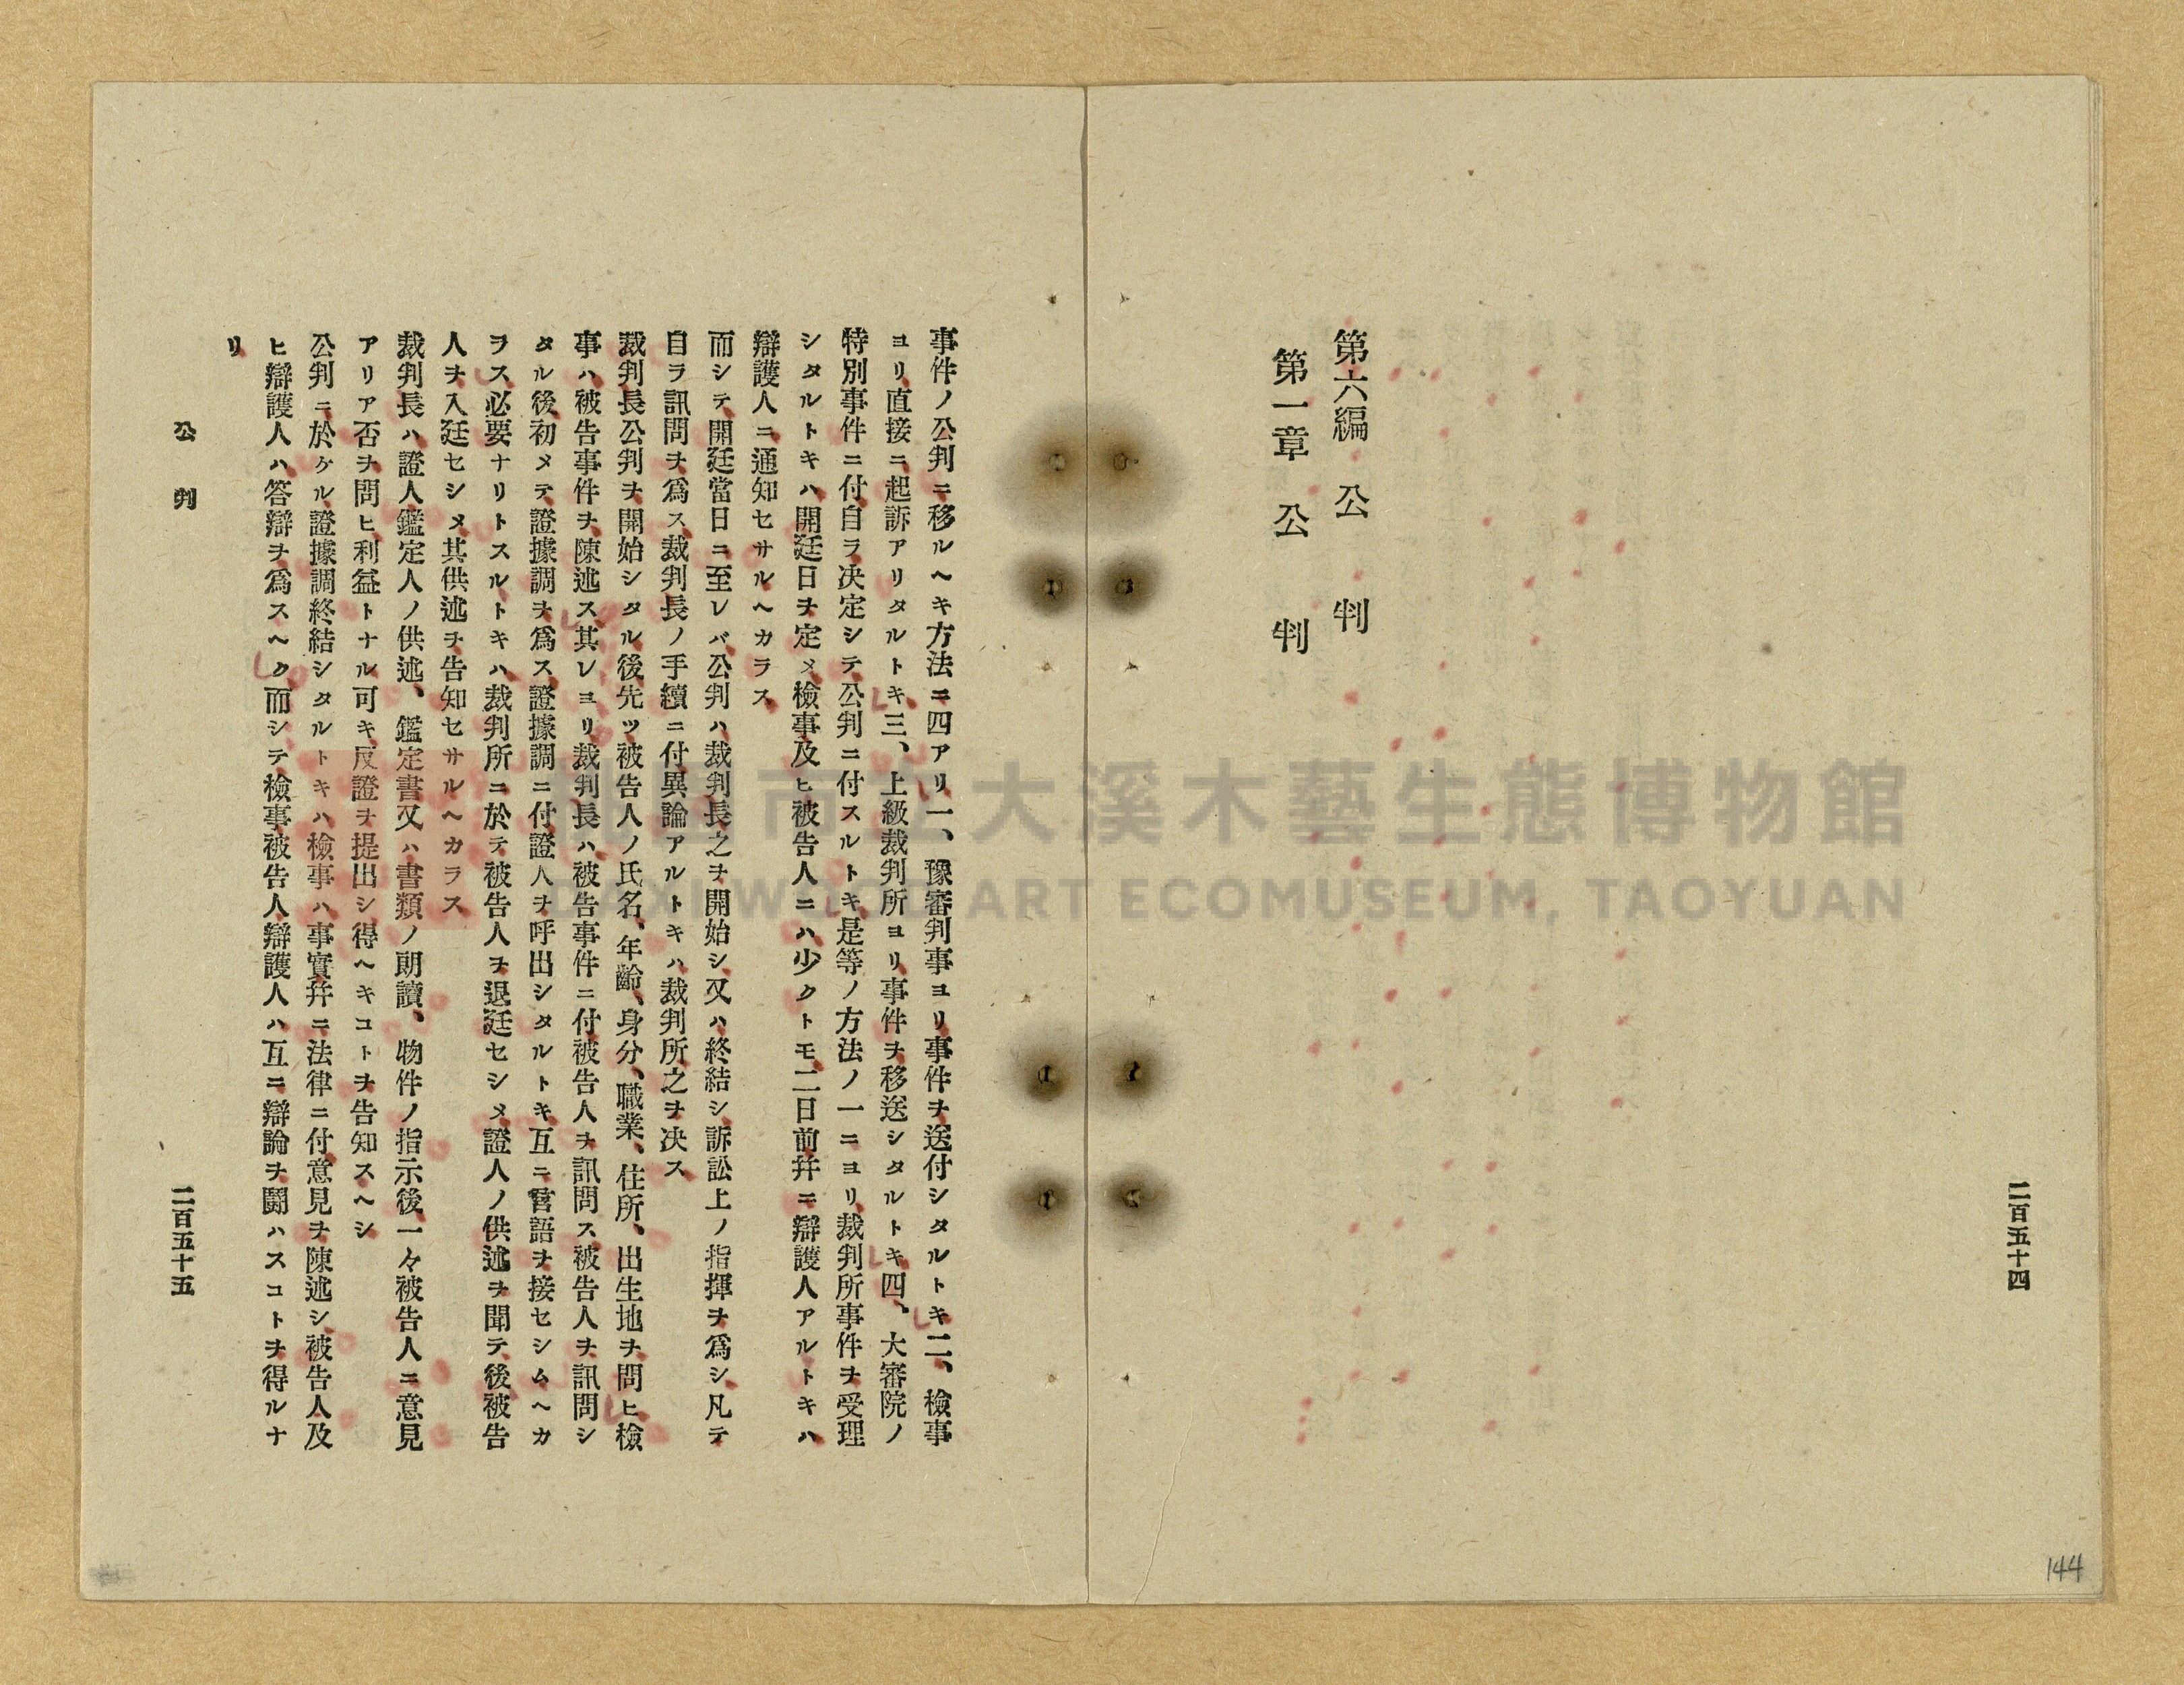 二百五十四
第六編　公　判
第一章　公　判
144
事件ノ公判ニ移ルヘキ方法ニ四アリ一、豫審判事ヨリ事件ヲ送付シタルトキ二、檢事
ヨリ直接ニ起訴アリタルトキ三、上級裁判所ヨリ事件ヲ移送シタルトキ四、大審院ノ
特別事件ニ付自ラ决定シテ公判ニ付スルトキ是等ノ方法ノ一ニヨリ裁判所事件ヲ受理
シタルトキハ開廷日ヲ定メ檢事及ヒ被告人ニハ少クトモ二日前幷ニ辯護人アルトキハ
辯護人ニ通知セサルヘカラス
而シテ開廷當日ニ至レバ公判ハ裁判長之ヲ開始シ又ハ終結シ訴訟上ノ指揮ヲ爲シ凡テ
自ラ訊問ヲ爲ス裁判長ノ手續ニ付異論アルトキハ裁判所之ヲ决ス
裁判長公判ヲ開始シタル後先ツ被告人ノ氏名、年齡、身分、職業、住所、出生地ヲ問ヒ檢
事ハ被告事件ヲ陳述ス其レヨリ裁判長ハ被告事件ニ付被告人ヲ訊問ス被告人ヲ訊問シ
タル後初メテ證據調ヲ爲ス證據調ニ付證人ヲ呼出シタルトキ互ニ言語ヲ接セシムヘカ
ラス必要ナリトスルトキハ裁判所ニ於テ被告人ヲ退廷セシメ證人ノ供述ヲ聞テ後被告
人ヲ入廷セシメ其供述ヲ告知セサルヘカラス
裁判長ハ證人鑑定人ノ供述、鑑定書又ハ書類ノ朗讀、物件ノ指示後一々被告人ニ意見
アリア否ヲ問ヒ利益トナル可キ反證ヲ提出シ得ヘキコトヲ告知スヘシ
公判ニ於ケル證據調終結シタルトキハ檢事ハ事實幷ニ法律ニ付意見ヲ陳述シ被告人及
ヒ辯護人ハ答辯ヲ爲スヘク而シテ檢事被告人辯護人ハ互ニ辯論ヲ鬪ハスコトヲ得ルナ
リ
公　判
二百五十五
大溪木藝生態博物館
ART ECOMUSEUM, TAOYUAN